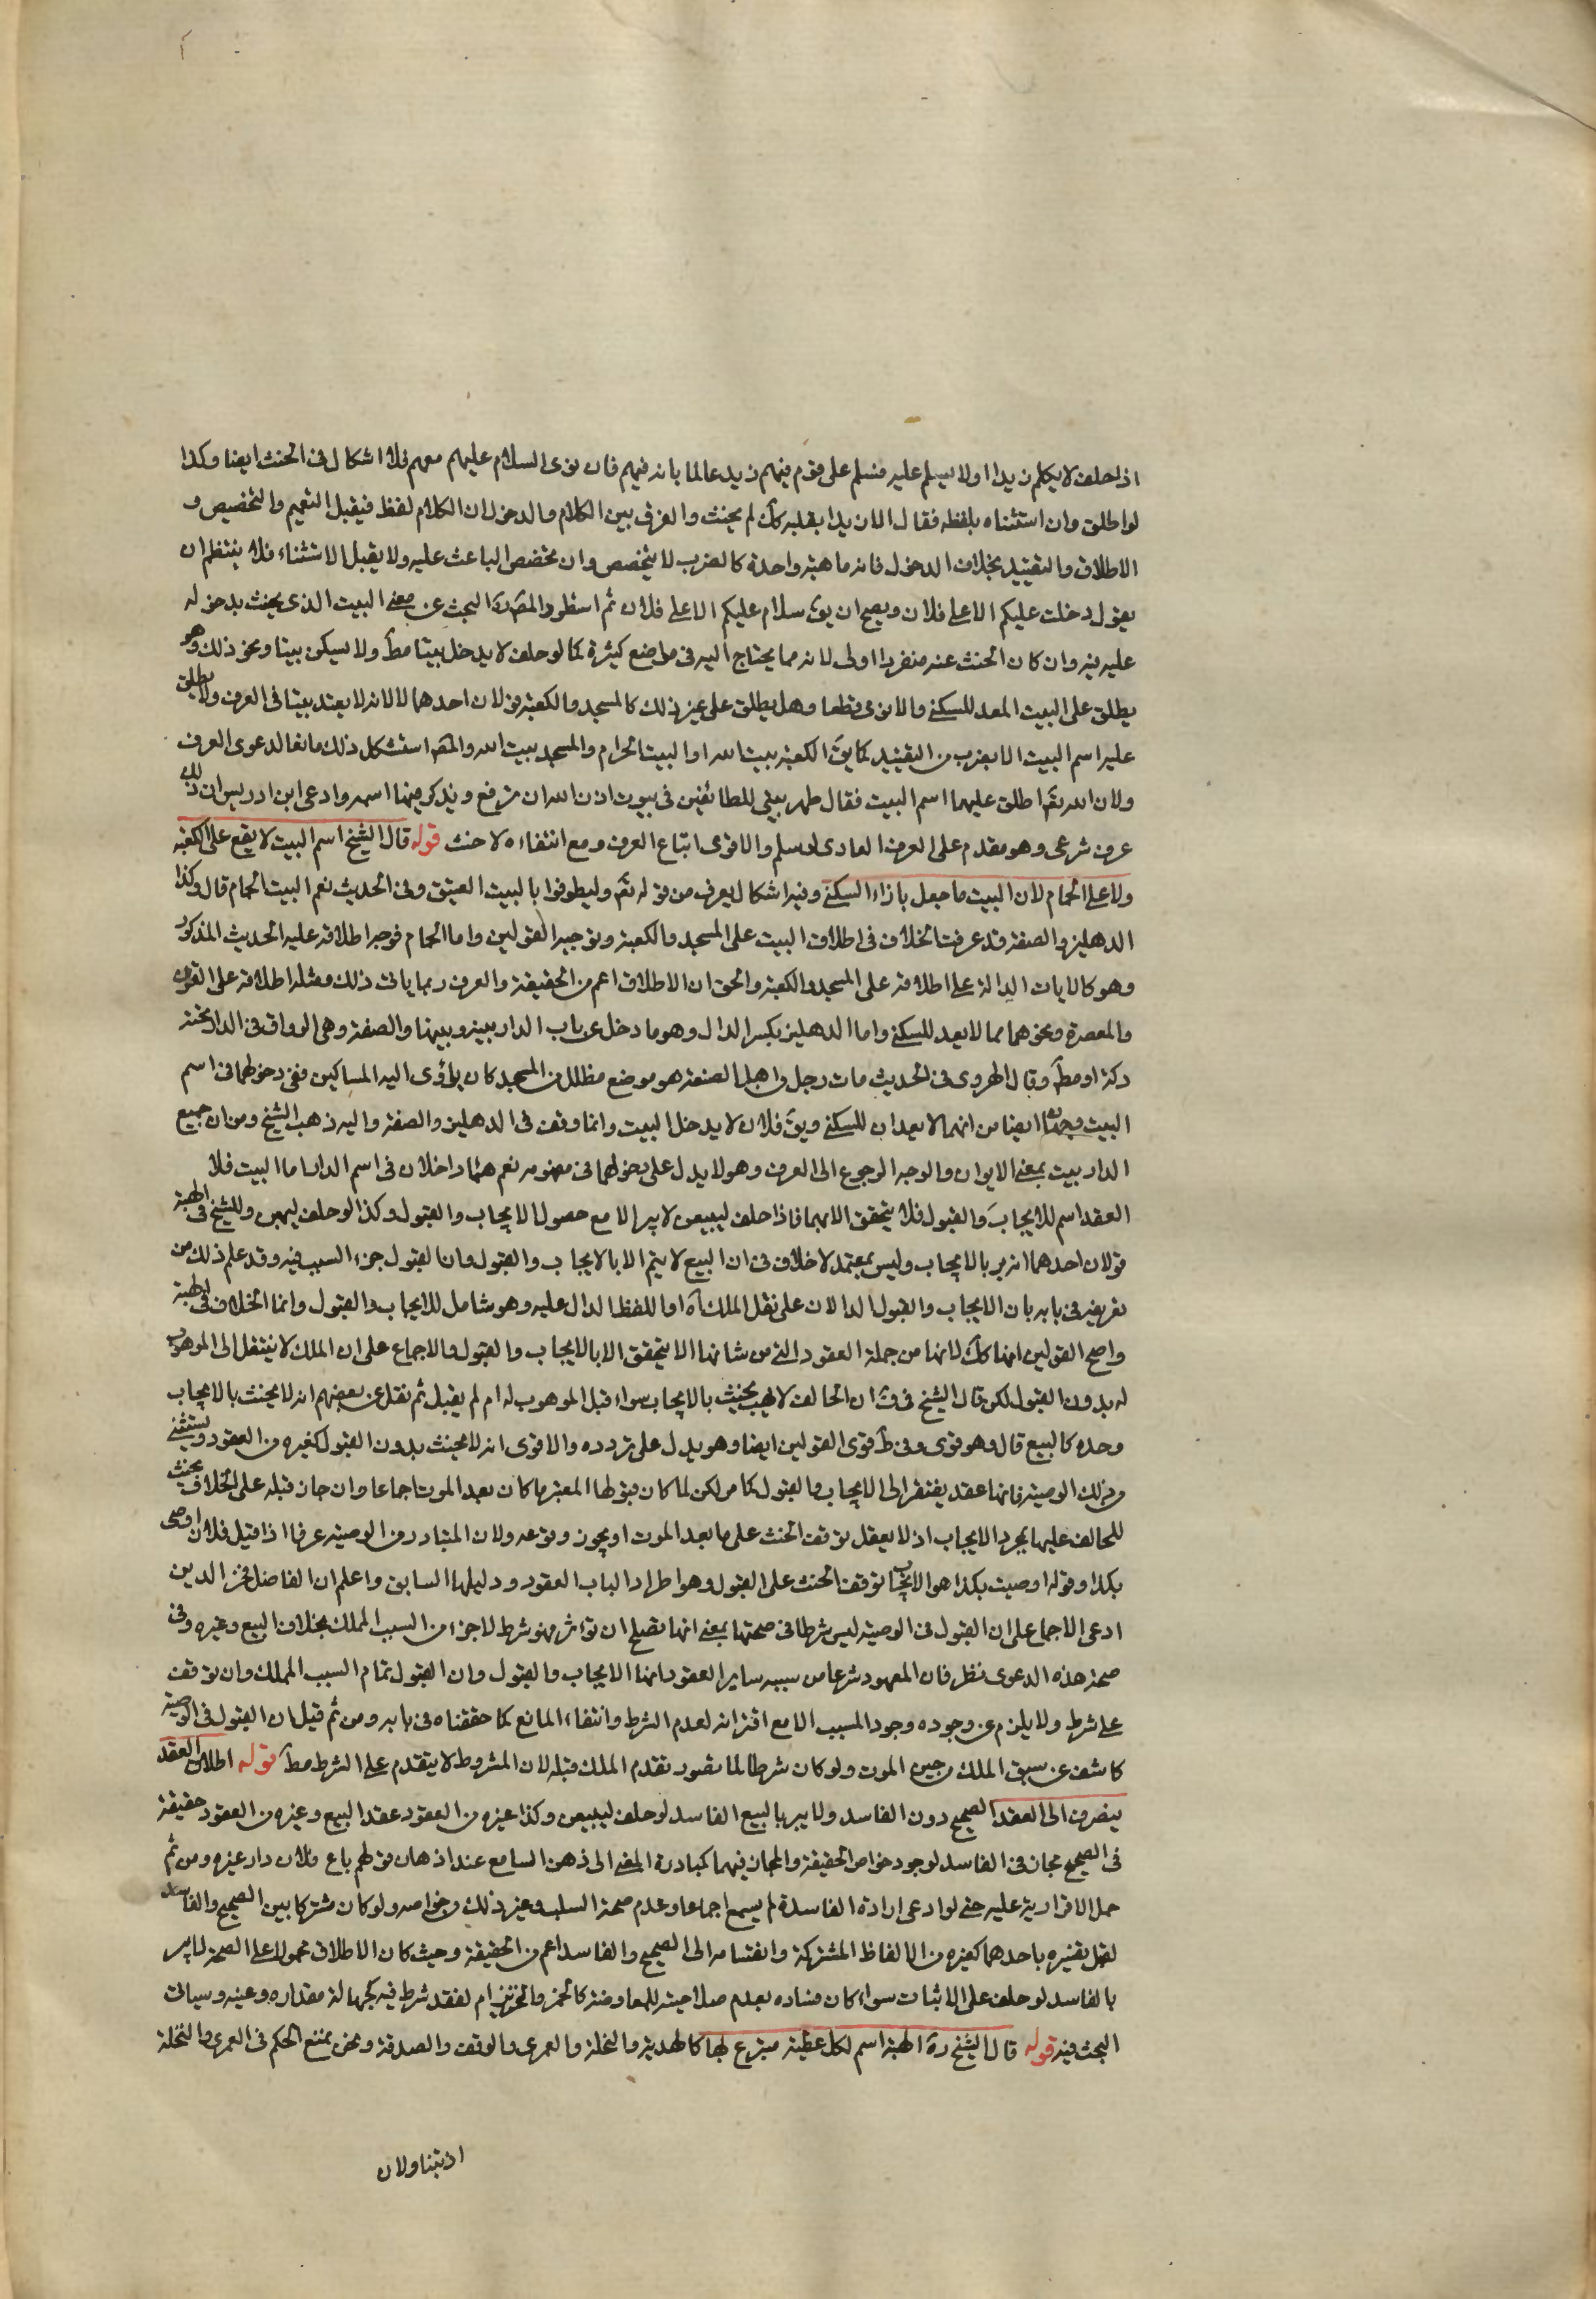 اذا حلف لا يكلم زيدا او لا يسلم عليه فسلم على قوم فيهم زيد عالما بانه فيهم فان نوى السلام عليهم معهم فلا اشكال فى الحنث ايضا وكذا
لو اطلق وان استثناه بلفظه فقال الا زيدا او بقلبه كك لم يحنث والفرق بين الكلام والدخول ان الكلام لفظ فيقبل التعميم والتخصيص و
الاطلاق والتقييد بخلاف الدخول فانه ماهية واحدة كالضرب لا يتخصص وان تخصص الباعث عليه ولا يقبل الاستثناء فلا ينتظم ان
يقول دخلت عليكم الا على فلان ويصح ان يق سلام عليكم الا على فلان ثم استطرد المص ره البحث عن معنى البيت الذى يحنث بدخوله
عليه فيه وان كان البحث عنه منفردا اولى لانه مما يحتاج اليه فى مواضع كثيرة كما لو حلف لا يدخل بيتا مط ولا يسكن بيتا ونحو ذلك وهو
يطلق على البيت المعد للسكنى والايوى قطعا وهل يطلق على غير ذلك كالمسجد والكعبة قولان احدهما لا لانه لا يعتد بيتا فى العرف ولا يطلق
عليه اسم البيت الا بضرب من التقييد كما يق الكعبة بيت الله او البيت الحرام والمسجد بيت الله والمص استشكل ذلك مانعا لدعوى العرف
ولان الله تع اطلق عليهما اسم البيت فقال طهر بيتى للطائفين فى بيوت اذن الله ان ترفع ويذكر فيها اسمه وادعى ابن ادريس ان ذلك
عرف شرعى وهو مقدم على العرف العادى لو سلم والاقوى اتباع العرف ومع انتفاءه لا حنث قوله قال الشيخ اسم البيت لا يقع على الكعبة
ولا على الحمام لان البيت ما جعل بازاء السكنى وفيه اشكال يعرف من قوله تع وليطوفوا بالبيت العتيق وفى الحديث نعم البيت الحمام قال وكذا
الدهليز والصفة قد عرفت الخلاف فى اطلاق البيت على المسجد والكعبة وتوجيه القولين واما الحمام فوجه اطلاقه عليه الحديث المذكور
وهو كالايات الدالة على اطلاقه على المسجد والكعبة والحق ان الاطلاق اعم من الحقيقة والعرف ربما يابى ذلك ومثله اطلاقه على الفرن
والمعصرة ونحوهما مما لا يعد للسكنى واما الدهليز بكسر الدال وهو ما دخل عن باب الدار بينه وبينها والصفة وهى الرواق فى الدار تحته
دكة او مط وقال الهروى فى الحديث مات رجل من اهل الصفة هو موضع مظلل من المسجد كان ياوى اليه المساكين ففى دخولهما فى اسم
البيت وجهان ايضا من انهما لا يعدان للسكنى ويق فلان لا يدخل البيت وانما وقف فى الدهليز والصفة واليه ذهب الشيخ ومن ان جميع
الدار بيت بمعنى الايوان والوجه الرجوع الى العرف وهو لا يدل على دخولهما فى مفهومه نعم هما داخلان فى اسم الدار اما البيت فلا
العقد اسم للايجاب والقبول فلا يتحقق الا بهما فاذا حلف ليبيعن لا يبر الا مع حصول الايجاب والقبول وكذا لو حلف ليهبن وللشيخ فى الهبة
قولان احدهما انه يبر بالايجاب وليس بمعتمد لا خلاف فى ان البيع لا يتم الا بالايجاب والقبول وان القبول جزء السبب فيه وقد علم ذلك من
تعريفه فى بابه بان الايجاب والقبول الدالان على نقل الملك آه او اللفظ الدال عليه وهو شامل للايجاب والقبول وانما الخلاف فى الهبة
واصح القولين انها كك لانها من جملة العقود التى من شانها الا يتحقق الا بالايجاب والقبول والاجماع على ان الملك لا ينتقل الى الموهوب
له بدون القبول لكن قال الشيخ فى ف ان الحالف لا يهب يحنث بالايجاب سواء قبل الموهوب له ام لم يقبل ثم نقل عن بعضهم انه لا يحنث بالايجاب
وحده كالبيع قال وهو قوى وفى ط قوى القولين ايضا وهو يدل على تردده والاقوى انه لا يحنث بدون القبول كغيره من العقود ويستثنى
من ذلك الوصية فانها عقد يفتقر الى الايجاب والقبول كما مر لكن لما كان قبولها المعتبر ما كان بعد الموت اجماعا وان جاز قبله على الخلاف يحنث
للحالف عليها بمجرد الايجاب اذ لا يعقل توقف الحنث على ما بعد الموت او يجوز وقوعه ولان المتبادر من الوصية عرفا اذا قيل فلان اوصى
بكذا وقوله اوصيت بكذا هو الايجاب توقف الحنث على القبول وهو اطراد الباب العقود ودليلها السابق واعلم ان الفاضل فخر الدين
ادعى الاجماع على ان القبول فى الوصية ليس شرطا فى صحتها بمعنى انها تصلح ان تؤثر فهو شرط لا جزء من السبب المملك بخلاف البيع وغيره وفى
صحة هذه الدعوى نظر فان المعهود شرعا من سببه ساير العقود انها الايجاب والقبول وان القبول تمام السبب المملك وان توقف
على شرط ولا يلزم من وجوده وجود المسبب الا مع اقترانه لعدم الشرط وانتفاء المانع كما حققناه فى بابه ومن ثم قيل ان القبول فى الوصية
كاشف عن سبق الملك من حين الموت ولو كان شرطا لما تصور تقدم الملك قبله لان المشروط لا يتقدم على الشرط مط قوله اطلاق العقد
ينصرف الى العقد الصحيح دون الفاسد ولا يبر بالبيع الفاسد لو حلف ليبيعن وكذا غيره من العقود عقد البيع وغيره من العقود حقيقة
فى الصحيح مجاز فى الفاسد لوجود خواص الحقيقة والمجاز فيهما كمبادرة المعنى الى ذهن السامع عند اذهان قولهم باع فلان داره وغيره ومن ثم
حمل الاقرار به عليه حتى لو ادعى ارادة الفاسد لم يسمع اجماعا وعدم صحة السلب وغير ذلك من خواصه ولو كان مشتركا بين الصحيح والفاسد
لقبل تفسيره باحدهما كغيره من الالفاظ المشتركة وانقسامه الى الصحيح والفاسد اعم من الحقيقة وحيث كان الاطلاق محمولا على الصحة لا يبر
بالفاسد لو حلف على الاثبات سواء كان فساده بعدم صلاحيته للمعاوضة كالخمر والخنزير ام لفقد شرط فيه كجهالة مقداره وعينه وسياتى
البحث فيه قوله قال الشيخ ره الهبة اسم لكل عطية متبرع بها كالهدية والنحلة والعمرى والوقف والصدقة ونحن نمنع الحكم فى العمرى والنحلة
اذ يتناولان